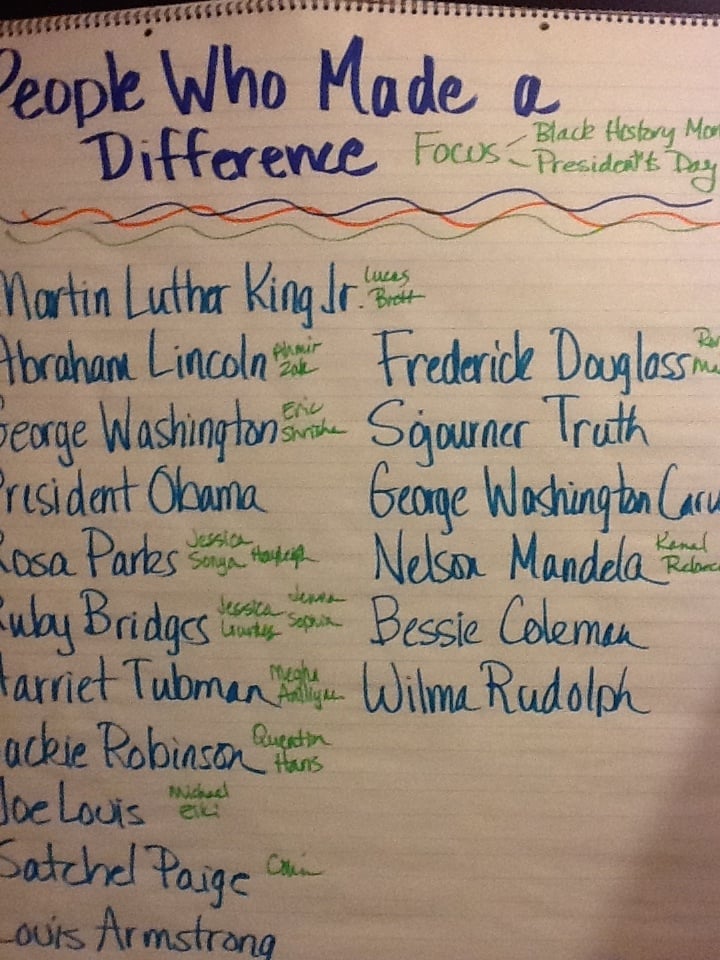 People Who Made a
Difference
Focus
Black History Mon
President's Day
Martin Luther King Jr.
Lucas
Brett
Abraham Lincoln
Ahmir
Zak
George Washington
Eric
President Obama
Rosa Parks
Jessica
Sonya Hayleigh
Ruby Bridges
Jessica Jenna
Lourdes Sophia
Harriet Tubman
Megha
Jackie Robinson
Quentin
Hans
Joe Louis
Michael
Eiki
Satchel Paige
Colin
Louis Armstrong
Frederick Douglass
Sojourner Truth
George Washington Carv
Nelson Mandela
Kamal
Bessie Coleman
Wilma Rudolph